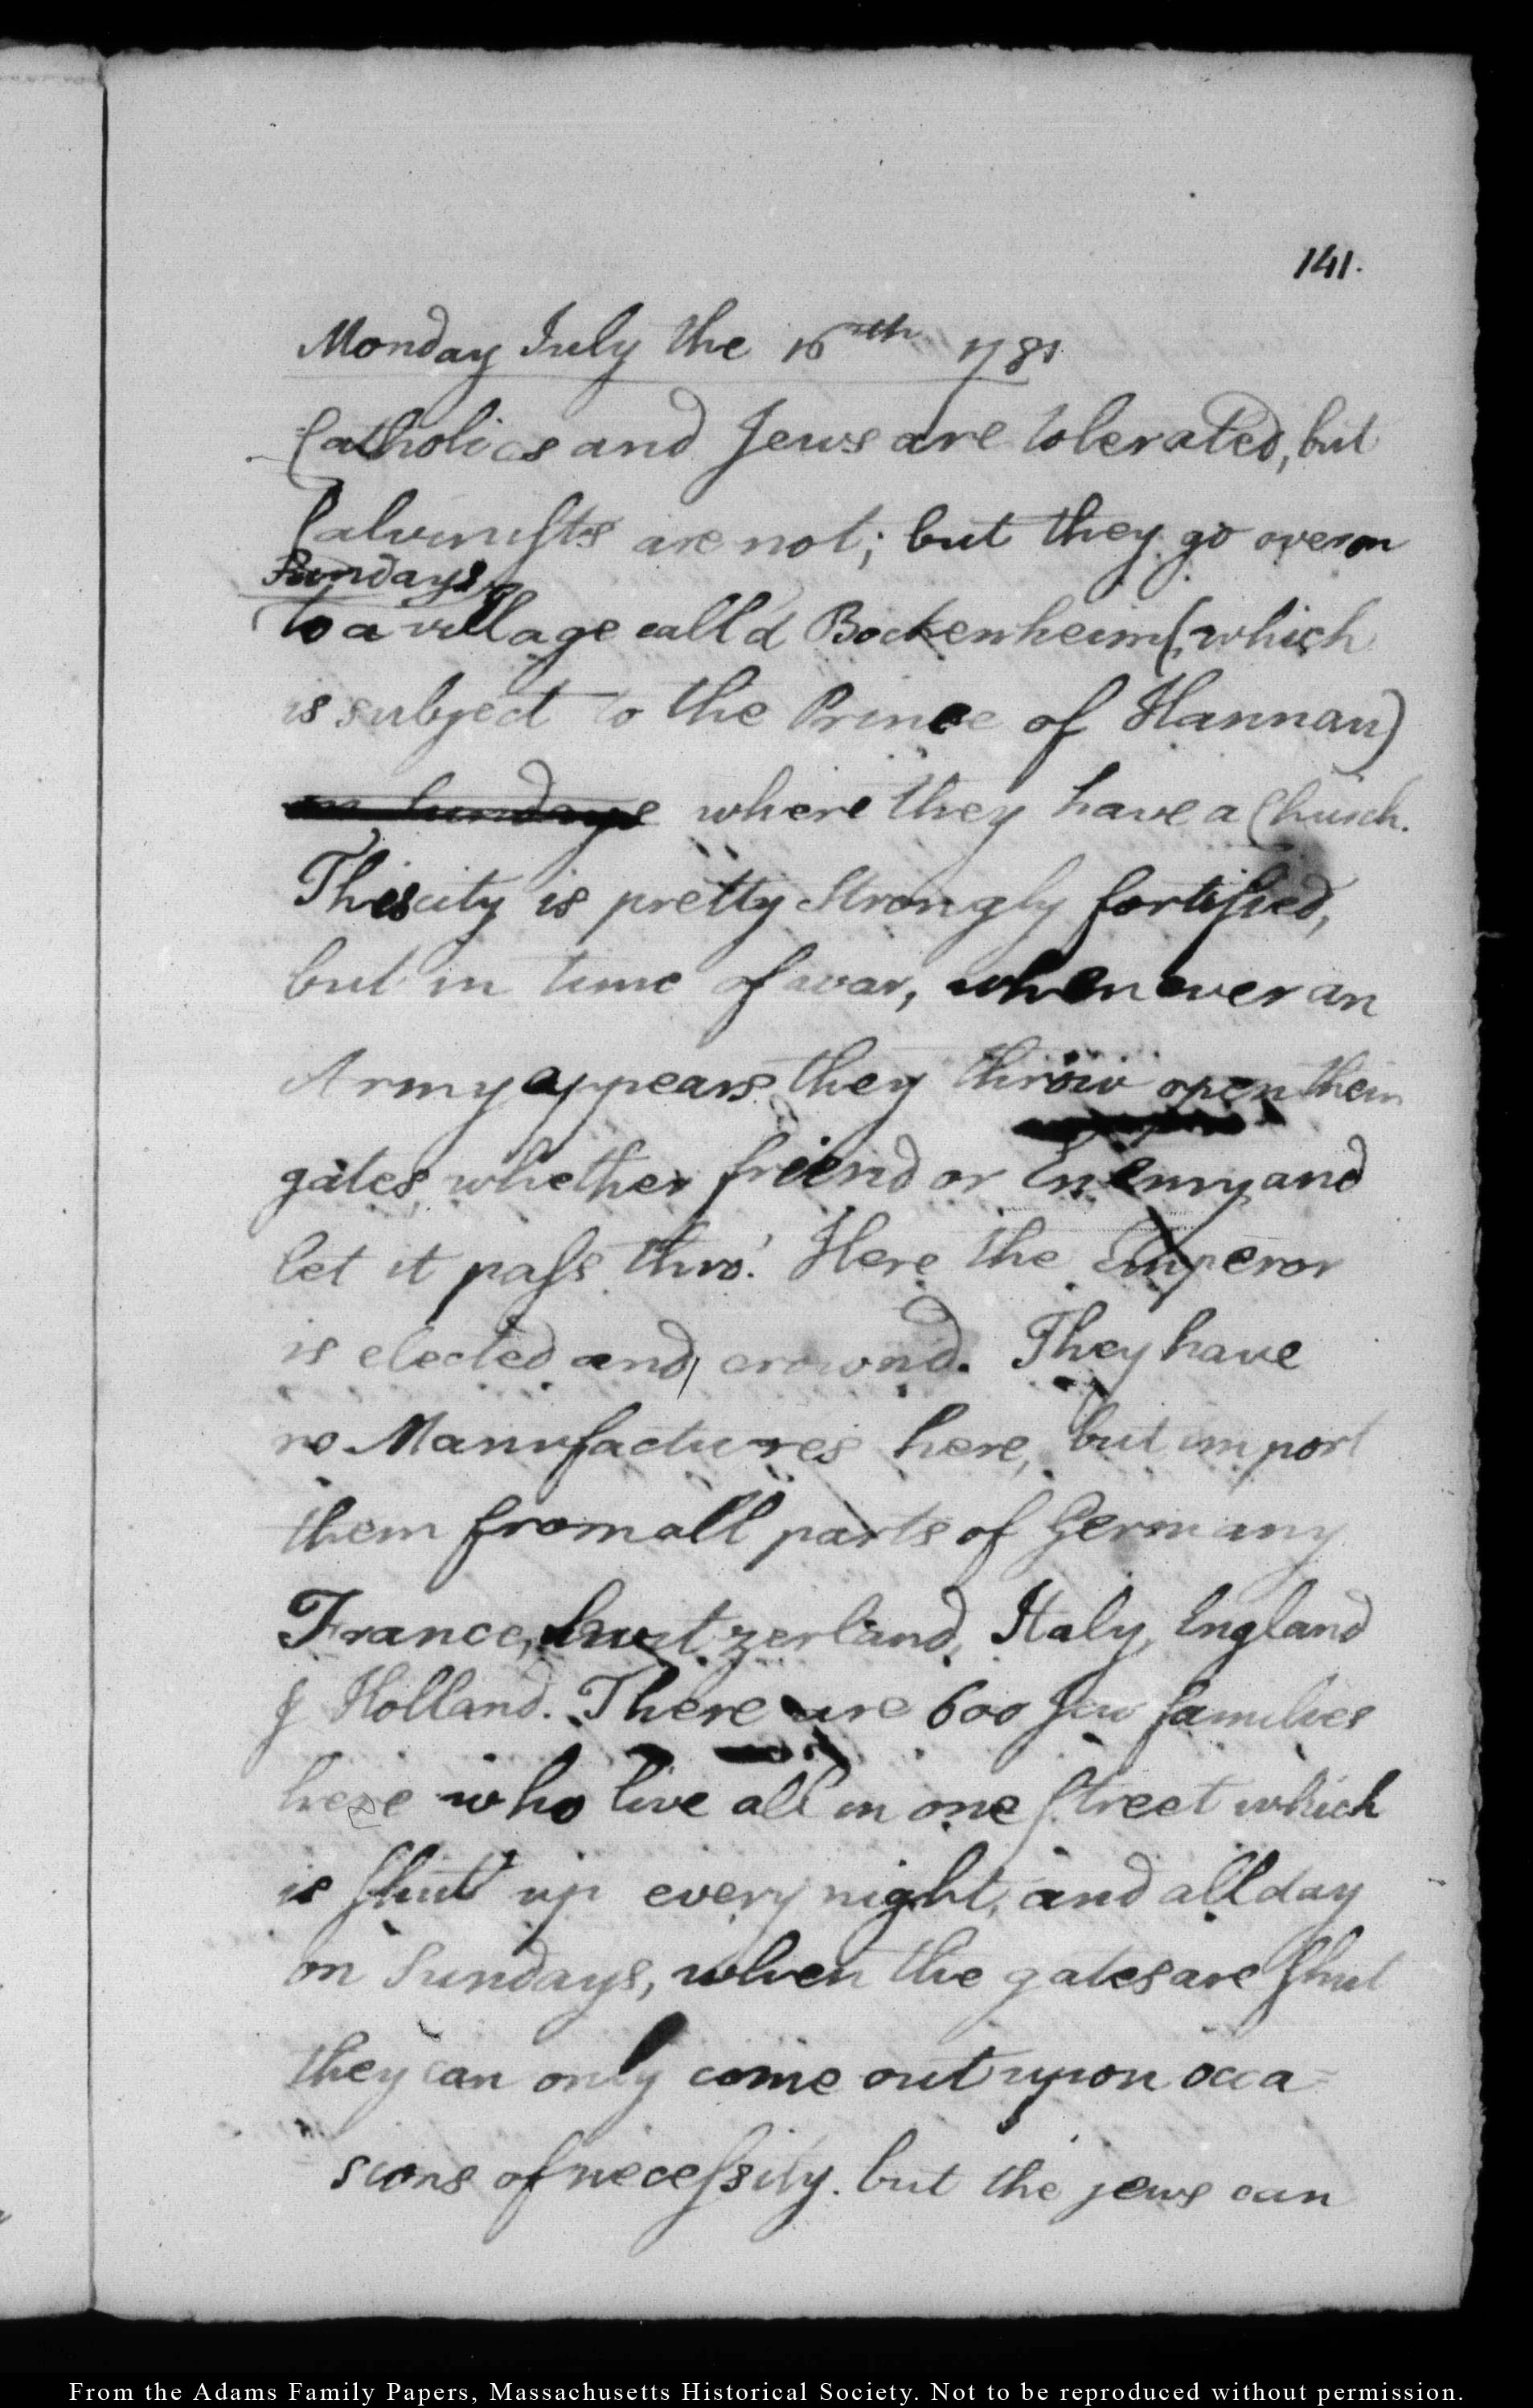 141.
Monday July the 16th 1781
Catholics and Jews are tolerated, but
Calvinists are not; but they go over on
Sundays
to a village call'd Bockenheim (which
is subject to the Prince of Hannau)
on Sundays where they have a Church.
This city is pretty strongly fortified,
but in time of war, whenever an
Army appears they throw open their
gates whether friend or Enemy and
let it pass thro'. Here the Emperor
is elected and crownd. They have
no Manufactures here, but import
them from all parts of Germany
France, Switzerland, Italy, England
& Holland. There are 600 Jew families
here who live all in one street which
is shut up every night, and all day
on Sundays, when the gates are shut
they can only come out upon occa=
sions of necessity. but the jews can
From the Adams Family Papers, Massachusetts Historical Society. Not to be reproduced without permission.